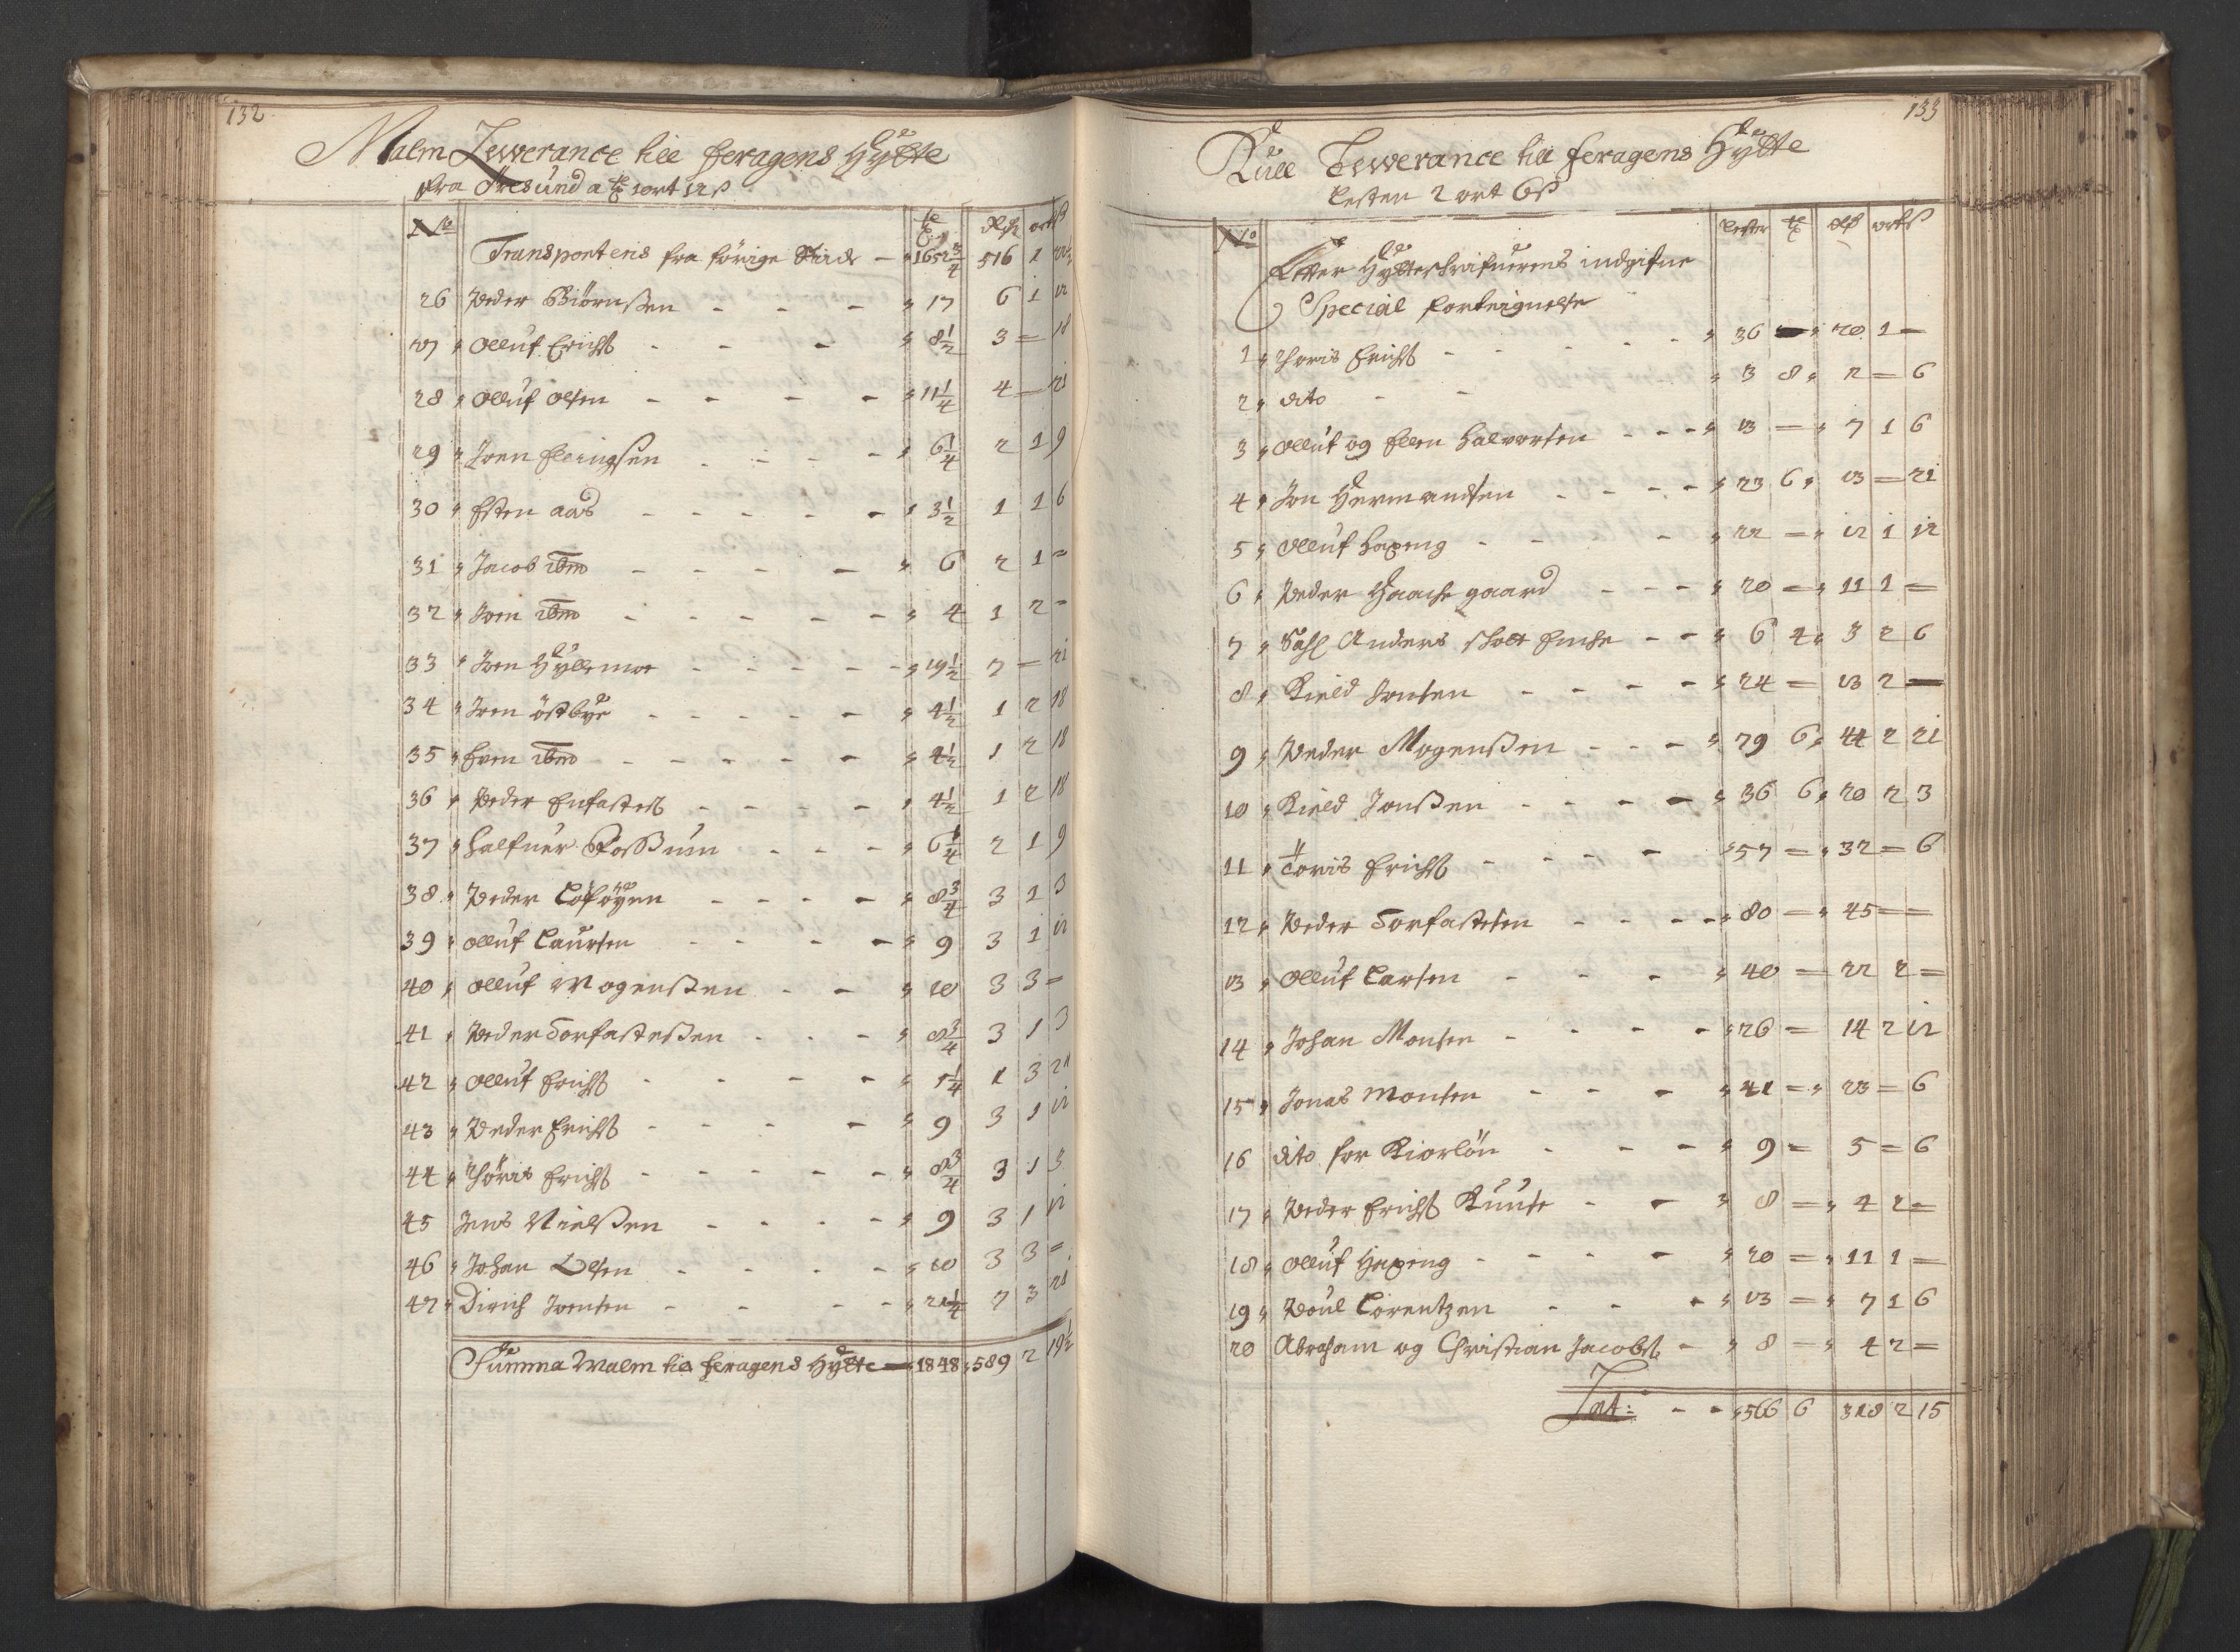 132
Malm Leverance till Feragens Hytte
fra Öresund a tr 1 ort 12 ß
No tr Rdr ort ß
Transporteris fra förige Side - 1652 3/4 516 1 22 1/2
26 Peder Biörnßen - - - 17 6 1 12
27 Olluf Erichs - - - 8 1/2 3 = 18
28 Olluf Olsen - - - - 11 1/4 4 - 21
29 Joen Flemgsen - - - - 6 1/4 2 1 9
30 Esten aas - - - - - 3 1/2 1 1 6
31 Jacob ibm - - - - 6 2 1 =
32 Joen ibm - - - - - 4 1 2 -
33 Joen Hyllemoe - - - - - 19 1/2 7 = 21
34 Joen östbye - - - - - 4 1/2 1 2 18
35 Even ibm - - - - - 4 1/2 1 2 18
36 Peder Enfastes - - - - 4 1/2 1 2 18
37 Halfuer Foßum - - - 6 1/4 2 1 9
38 Peder Löföyen - - - - 8 3/4 3 1 3
39 Olluf Laursen - - - - 9 3 1 12
40 Olluf Mogenßen - - 10 3 3 =
41 Peder Torfasteßen - - - 8 3/4 3 1 3
42 Olluf Erichs - - - - 5 1/4 1 3 21
43 Peder Erichs - - - - 9 3 1 12
44 Thöris Erichs - - - - - 8 3/4 3 1 3
45 Jens Nielßen - - - - 9 3 1 12
46 Johan Olsen - - - - 10 3 3 =
47 Dirich Joensen - - - - 21 1/4 7 3 21
Summa Malm till Feragens Hytte - 1848 589 2 19 1/2
133
Kull Leverance till Feragens Hytte
Lesten 2 ort 6 ß
No Lester tr Rdr ort ß
Efter Hytteschrifuerens indgifne
Special forteignelse
1 Thoris Erichs - - - - - 36 - 20 1 -
2 dito - - 3 8 2 = 6
3 Olluf og Ellen Halvorsen - - - 13 = 7 1 6
4 Jon Hermandsen - - - - 23 6 13 = 21
5 Olluf Haxeng - - - - 22 = 12 1 12
6 Peder Haache gaard - - - 20 = 11 1 =
7 Sahl Anders Enche - - 6 4 3 2 6
8 Kield Jonsen - - - - 24 = 13 2 -
9 Peder Mogenßen - - - 79 6 44 2 21
10 Kield Jonßen - - - - 36 6 20 2 3
11 Toris Erichs - - - - 57 = 32 = 6
12 Peder Torfastesen - - - - 80 = 45 = =
13 Olluf Larsen - - - 40 = 22 2 =
14 Johan Monsen - - - - 26 = 14 2 12
15 Jonas Monsen - - - 41 = 23 = 6
16 dito for Kiorlön - - - 9 = 5 = 6
17 Peder Erichs Kuuse - - 8 = 4 2 =
18 Olluf Haxeng - - - - 20 = 11 1 =
19 Poul Lorentzen - - - 13 = 7 1 6
20 Abraham og Christian Jacobs - 8 = 4 2 =
Lat: - - 566 6 318 2 15